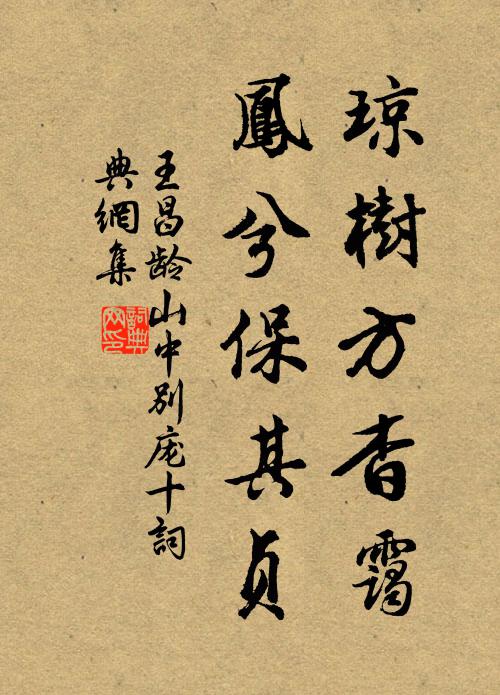 琼樹方杳靄
鳳兮保其貞
王昌龄山中別庞十詞
典網集
詞典
网印